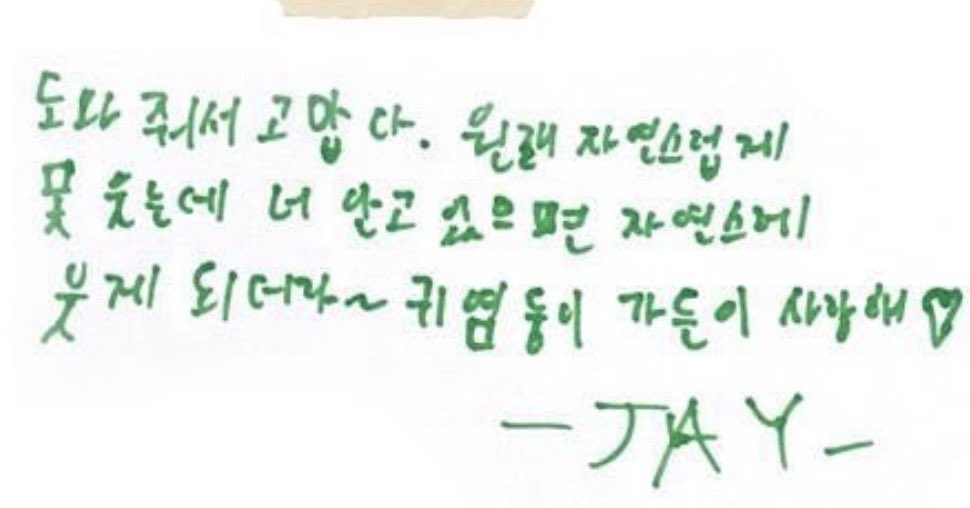 도와 줘서 고맙다. 원래 자연스럽게
못 웃는데 너 안고 있으면 자연스레
웃게 되더라~ 귀염둥이 가든이 사랑해♡
-JAY-